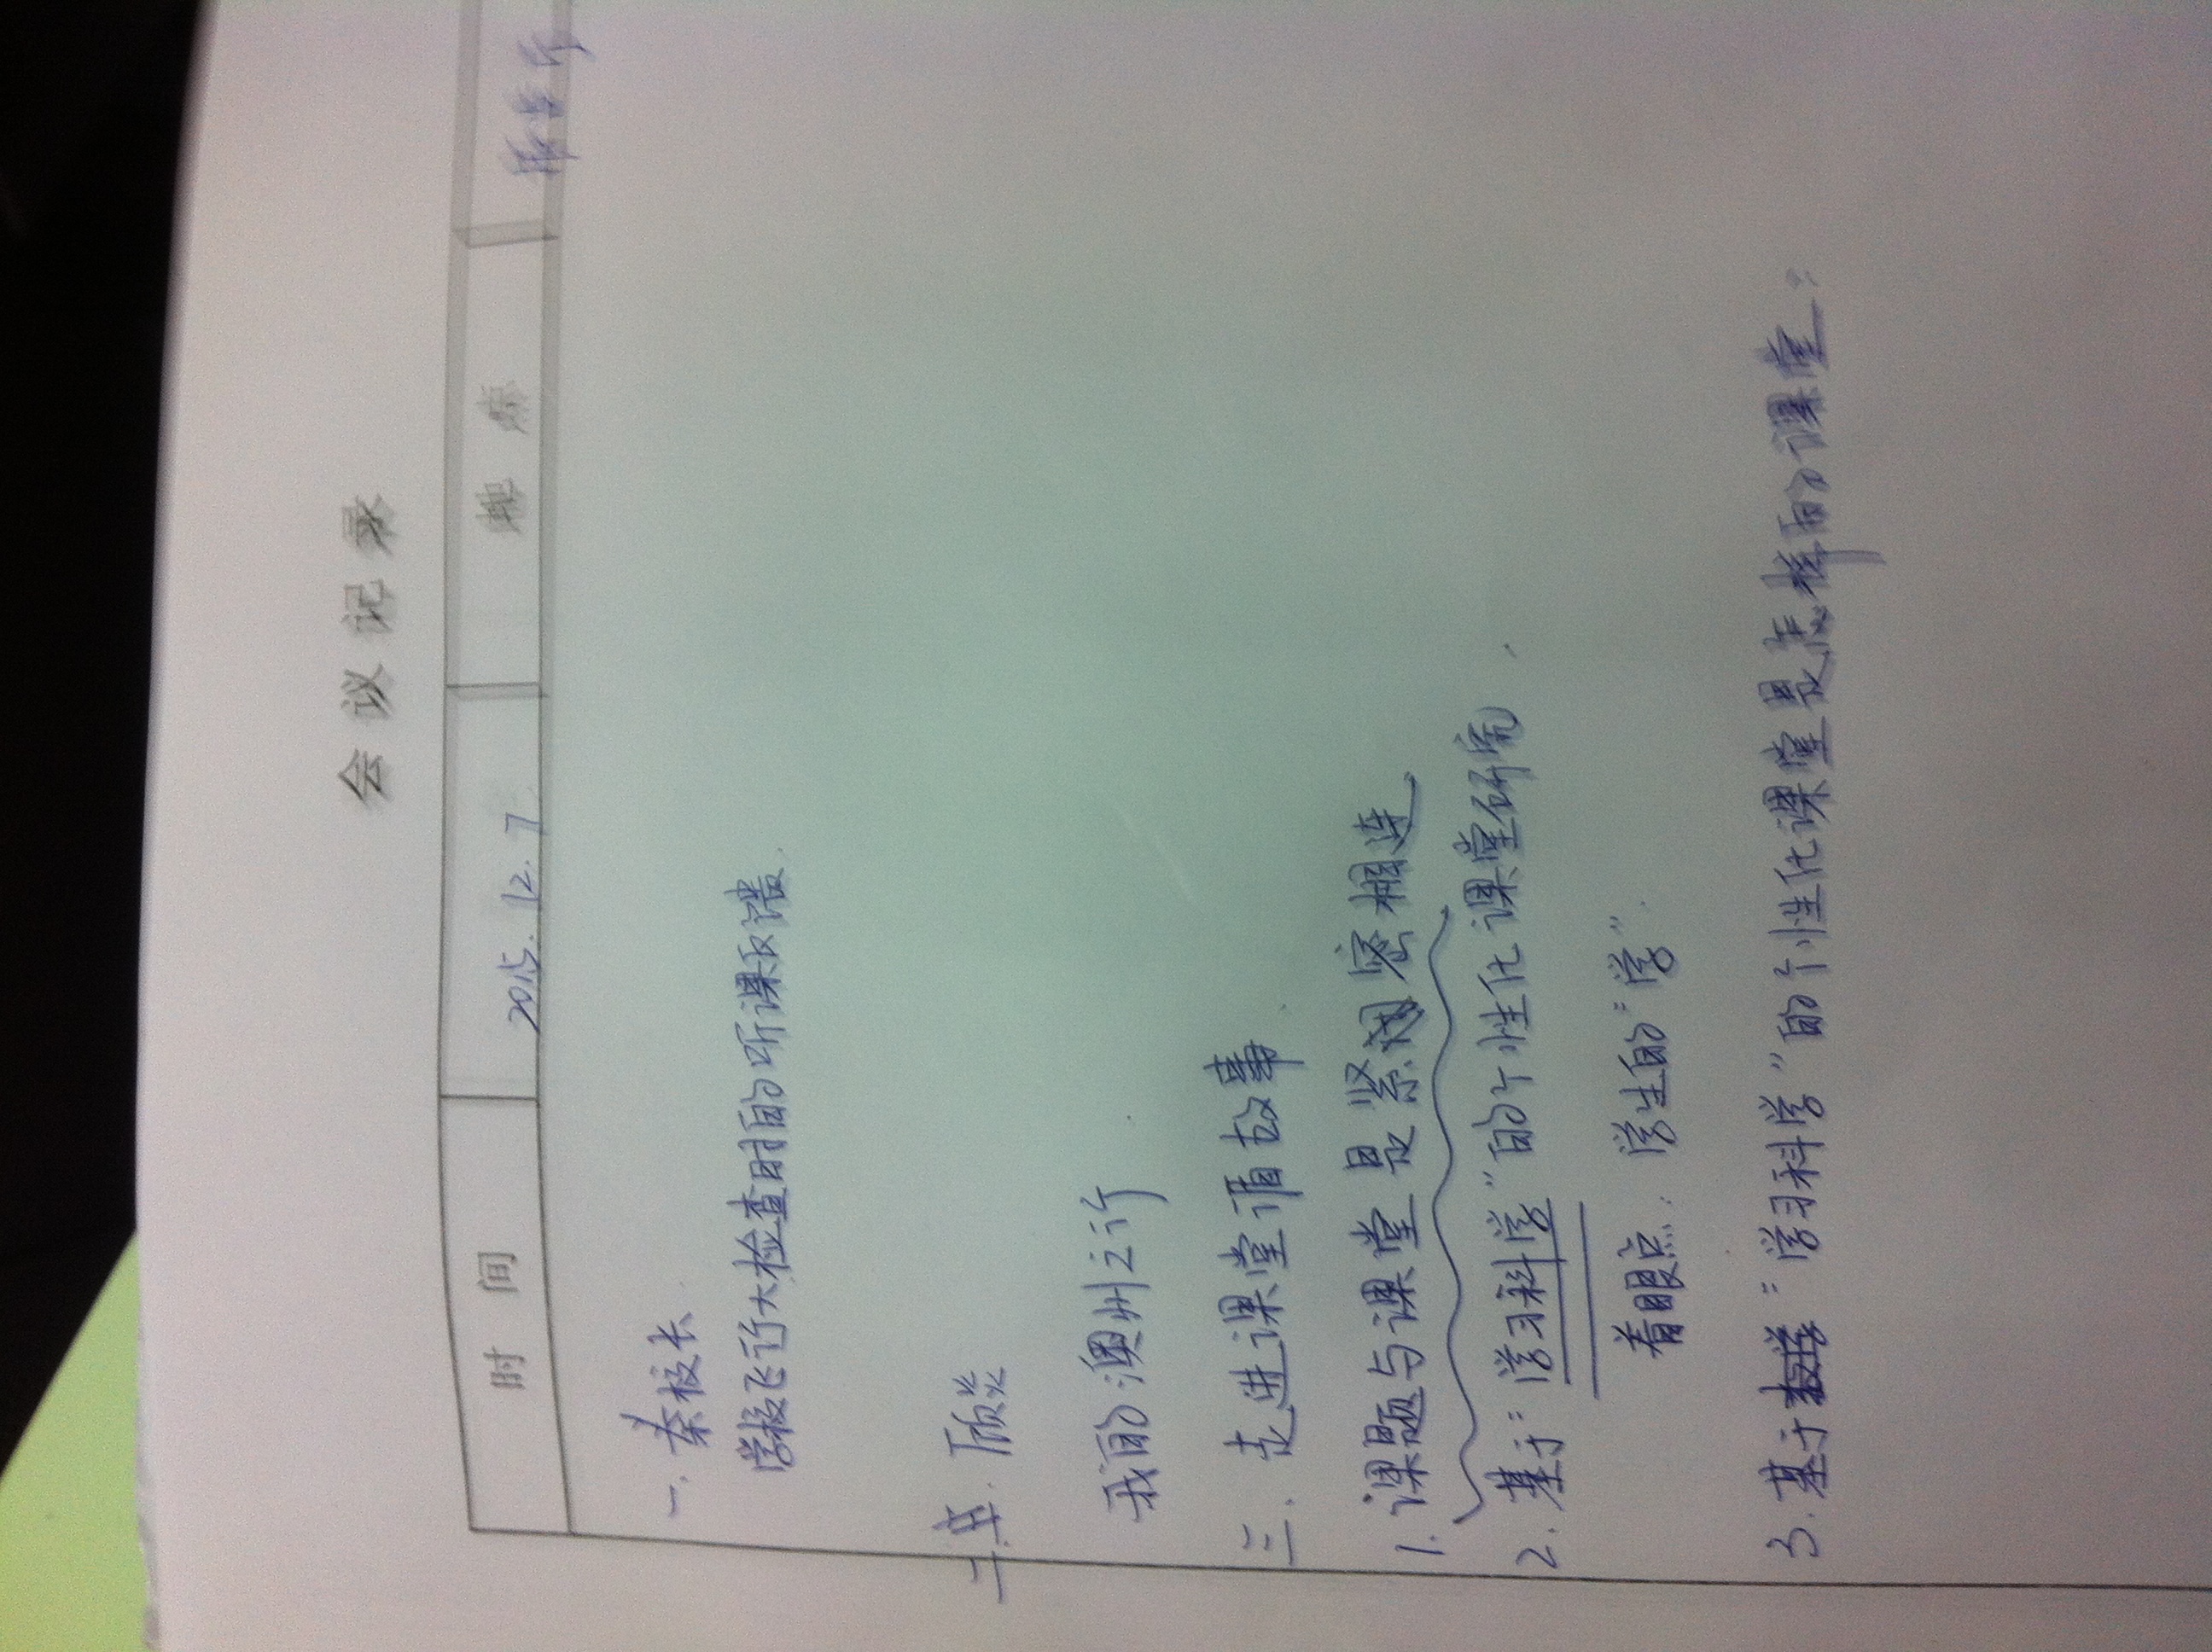 会议记录
时 间 2015.12.7 地 点
一. 秦校长
学校飞行大检查时的听课反馈.
二. 顾
我的澳州之行
三. 走进课堂 循故事
1. 课题与课堂是紧密相连
2. 基于“学习科学”的个性化课堂研究.
着眼点: 学生的“学”.
3. 基于“学习科学”的个性化课堂是怎样的课堂: